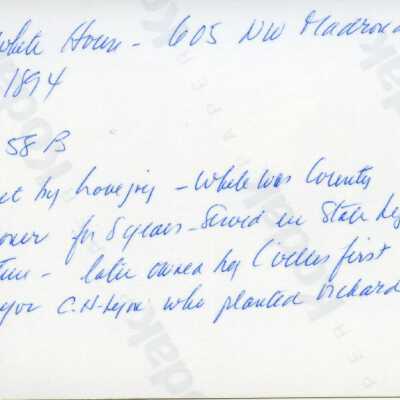 White House - 605 NW Madrona
1894
58 B
by Lovejoy - White was County
for 8 years - Served in State Leg
- later owned by first
C.H. who planted orchard